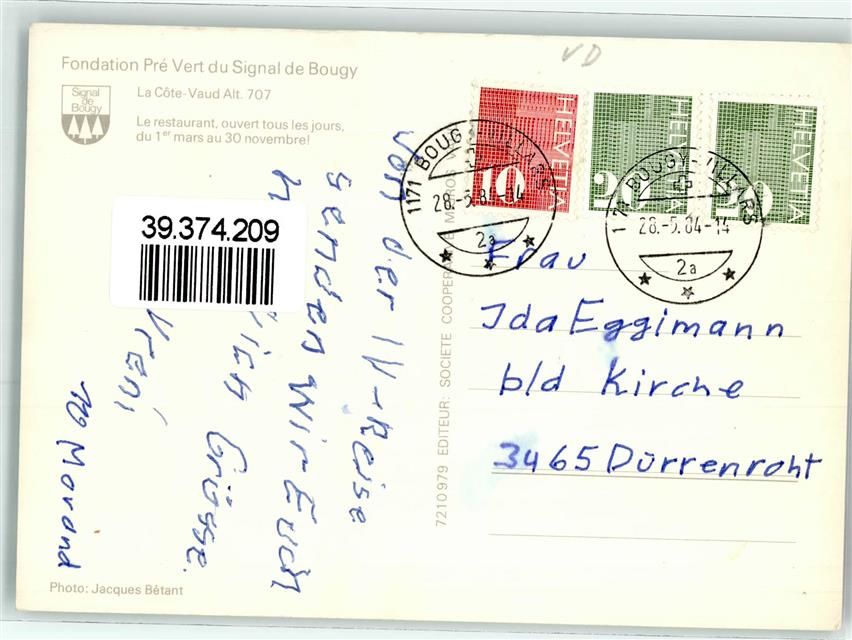 VD
Fondation Pré Vert du Signal de Bougy
Signal
de
Bougy
La Côte-Vaud Alt. 707
Le restaurant, ouvert tous les jours,
du 1er mars au 30 novembre!
HELVETIA
10
HELVETIA
20
HELVETIA
20
1171 BOUGY-VILLARS
28.-5.84-14
2a
1171 BOUGY-VILLARS
28.-5.84-14
2a
39.374.209
von der IV-Reise
senden Wir Euch
Grüsse.
Vreni
Morand
7210979 EDITEUR: SOCIETE COOPERA MIGROS
Frau
Ida Eggimann
b/d Kirche
3465 Dürrenroht
Photo: Jacques Bétant